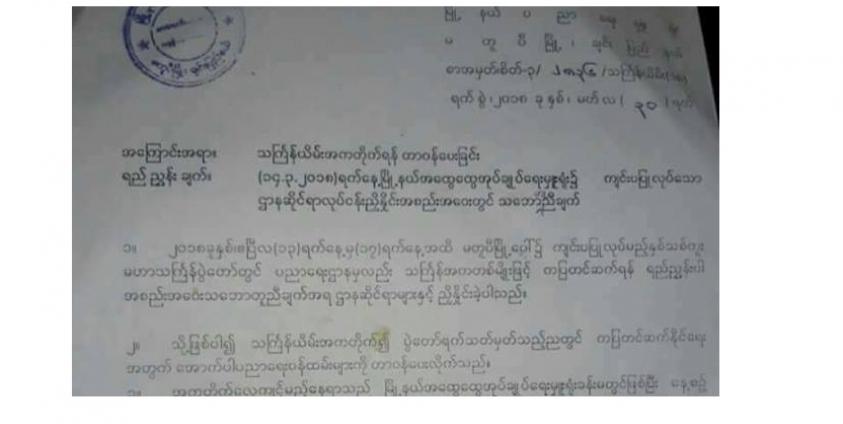 မြို့ နယ် ပ ညာ ရေး မှူး ရုံး
မ တူ ပီ မြို့ ၊ ချင်း ပြည် နယ်
စာအမှတ်၊စိတ်-၃/ /သင်္ကြန်ယိမ်း
ရက် စွဲ ၊ ၂၀၁၈ ခု နှစ် ၊ မတ် လ ( ၃၀ ) ရက်
အကြောင်းအရာ။ သင်္ကြန်ယိမ်းအကတိုက်ရန် တာဝန်ပေးခြင်း
ရည် ညွှန်း ချက်။ (၁၄.၃.၂၀၁၈)ရက်နေ့၊မြို့နယ်အထွေထွေအုပ်ချုပ်ရေးမှူးရုံး၌ ကျင်းပပြုလုပ်သော
ဌာနဆိုင်ရာလုပ်ငန်းညှိနှိုင်းအစည်းအဝေးတွင် သဘောတူညီချက်
၁။ ၂၀၁၈ခုနှစ်၊ဧပြီလ(၁၃)ရက်နေ့မှ(၁၇)ရက်နေ့အထိ မတူပီမြို့ပေါ်၌ ကျင်းပပြုလုပ်မည့်နှစ်သစ်ကူး
မဟာသင်္ကြန်ပွဲတော်တွင် ပညာရေးဌာနမှလည်း သင်္ကြန်အကတစ်မျိုးဖြင့် ကပြတင်ဆက်ရန် ရည်ညွှန်းပါ
အစည်းအဝေးသဘောတူညီချက်အရ ဌာနဆိုင်ရာများနှင့် ညှိနှိုင်းခဲ့ပါသည်။
၂။ သို့ဖြစ်ပါ၍ သင်္ကြန်ယိမ်းအကတိုက်၍ ပွဲတော်ရက်သတ်မှတ်သည့်ညတွင် ကပြတင်ဆက်နိုင်ရေး
အတွက် အောက်ပါပညာရေးဝန်ထမ်းများကို တာဝန်ပေးလိုက်သည်။
၃။ အကတိုက်လေ့ကျင့်မည့်နေရာသည် မြို့နယ်အထွေထွေအုပ်ချုပ်ရေးမှူးရုံးခန်းမတွင်ဖြစ်ပြီး နေ့စဉ်